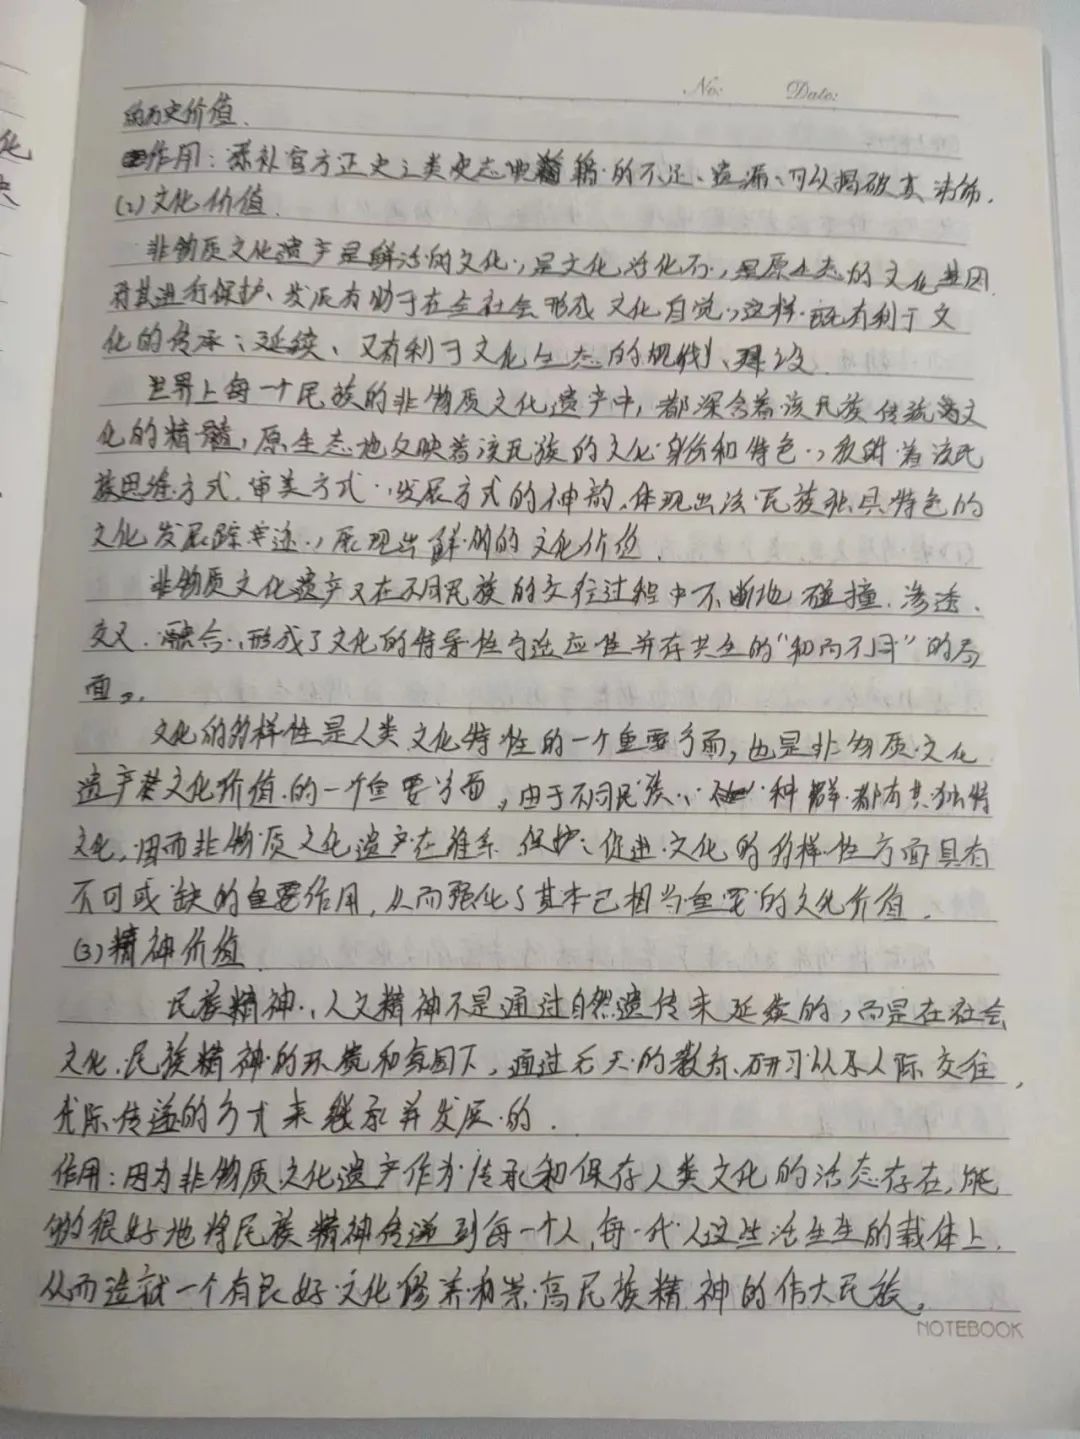 No: Date:
的历史价值.
作用：添补官方正史之类史志典籍的不足、遗漏、可以揭破其讳饰.
(2)文化价值.
非物质文化遗产是鲜活的文化,是文化活化石,是原生态的文化基因.
对其进行保护、发展有助于在全社会形成文化自觉,这样既有利于文
化的传承、延续、又有利于文化生态的规划、建设.
世界上每一个民族的非物质文化遗产中,都深含着该民族传统文
化的精髓,原生态地反映着该民族的文化身份和特色,映射着该民
族思维方式.审美方式、发展方式的神韵.体现出该民族独具特色的
文化发展踪迹,展现出鲜明的文化价值.
非物质文化遗产又在不同民族的交往过程中不断地碰撞.渗透.
交叉.融合,形成了文化的特异性与适应性并存共生的“和而不同”的局
面。
文化的多样性是人类文化特性的一个重要方面,也是非物质文化
遗产其文化价值的一个重要方面,由于不同民族、种群都有其独特
文化,因而非物质文化遗产在维系.保护、促进文化的多样性方面具有
不可或缺的重要作用,从而强化了其本已相当重要的文化价值.
(3)精神价值.
民族精神、人文精神不是通过自然遗传来延续的,而是在社会
文化.民族精神的环境和氛围下,通过后天的教育、研习以及人际交往,
代际传递的方式来继承并发展的.
作用：因为非物质文化遗产作为传承和保存人类文化的活态存在,能
够很好地将民族精神传递到每一个人,每一代人这些活生生的载体上.
从而造就一个有良好文化修养和崇高民族精神的伟大民族。
NOTEBOOK
化